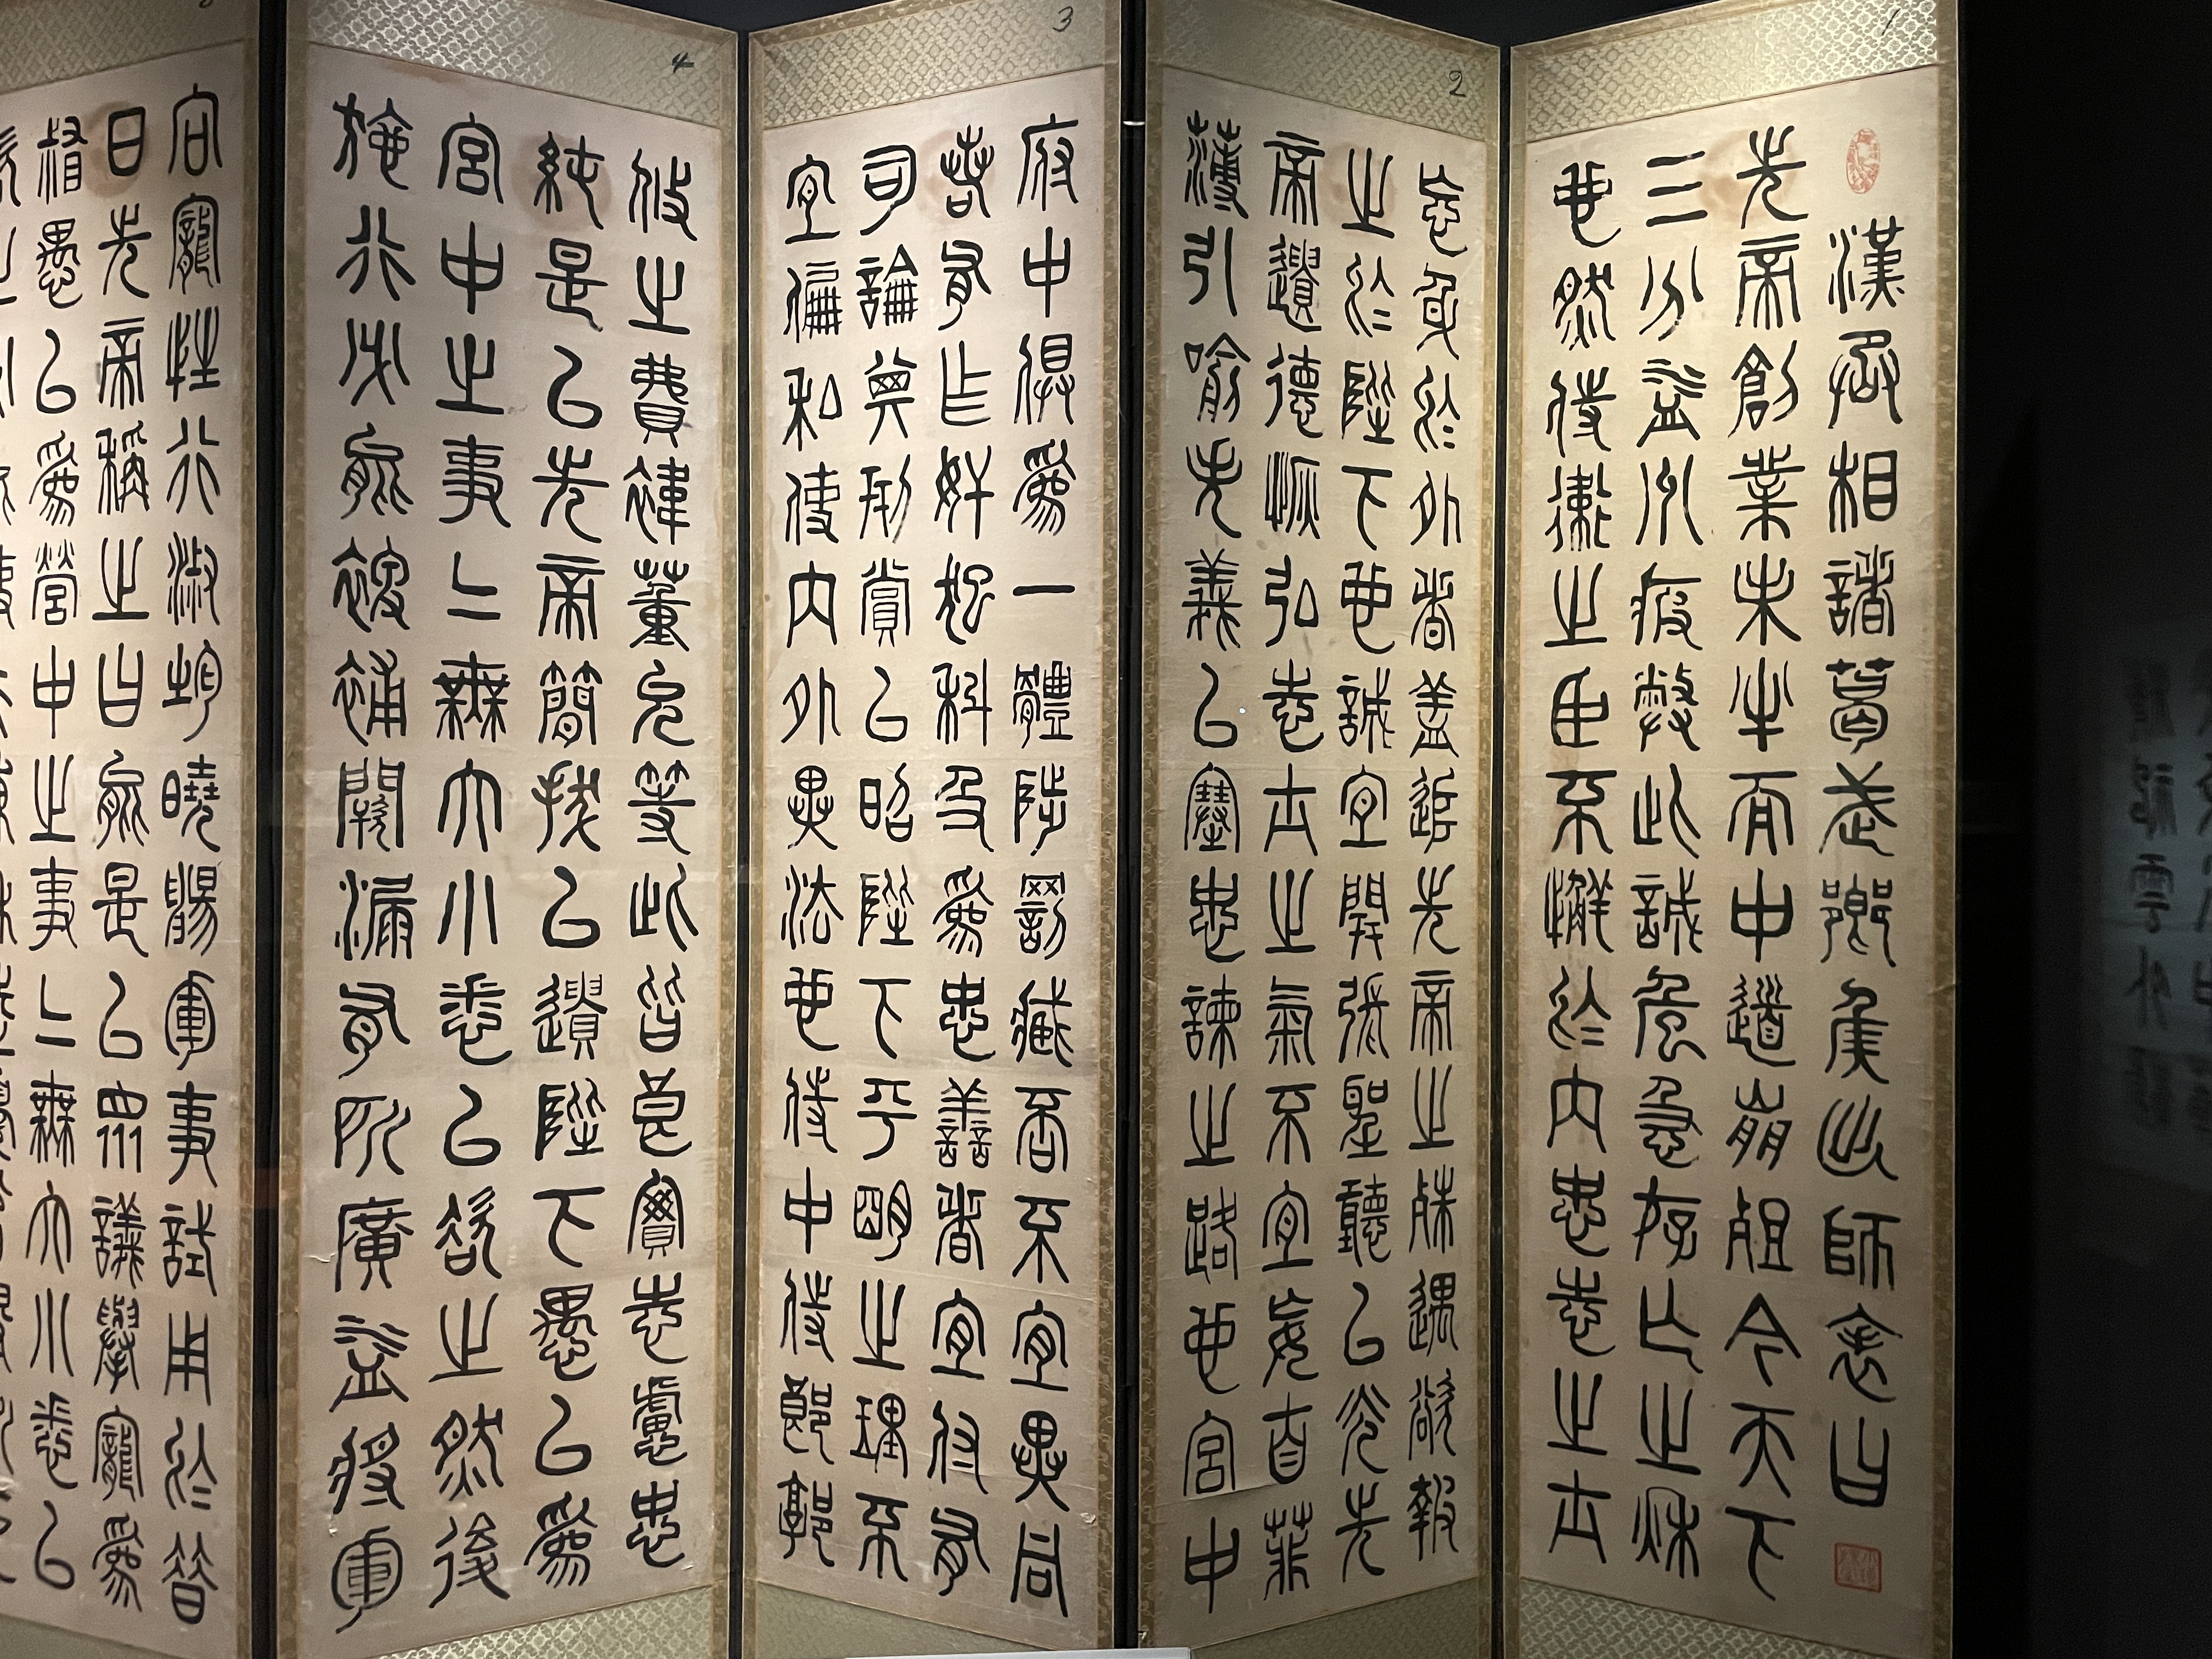 1
漢丞相諸葛武鄉侯出師表曰
先帝創業未半而中道崩殂今天下
三分益州疲弊此誠危急存亡之秋
也然侍衛之臣不懈於內忠志之士
2
忘身於外者蓋追先帝之殊遇欲報
之於陛下也誠宜開張聖聽以光先
帝遺德恢弘志士之氣不宜妄自菲
薄引喻失義以塞忠諫之路也宮中
3
府中俱爲一體陟罰臧否不宜異同
若有作奸犯科及爲忠善者宜付有
司論其刑賞以昭陛下平明之理不
宜偏私使內外異法也侍中侍郎郭
4
攸之費禕董允等此皆良實志慮忠
純是以先帝簡拔以遺陛下愚以爲
宮中之事二無大小悉以咨之然後
施行必能裨補闕漏有所廣益將軍
向寵性行淑均曉暢軍事試用於昔
日先帝稱之曰能是以眾議舉寵爲
督愚以爲營中之事二無大小悉以